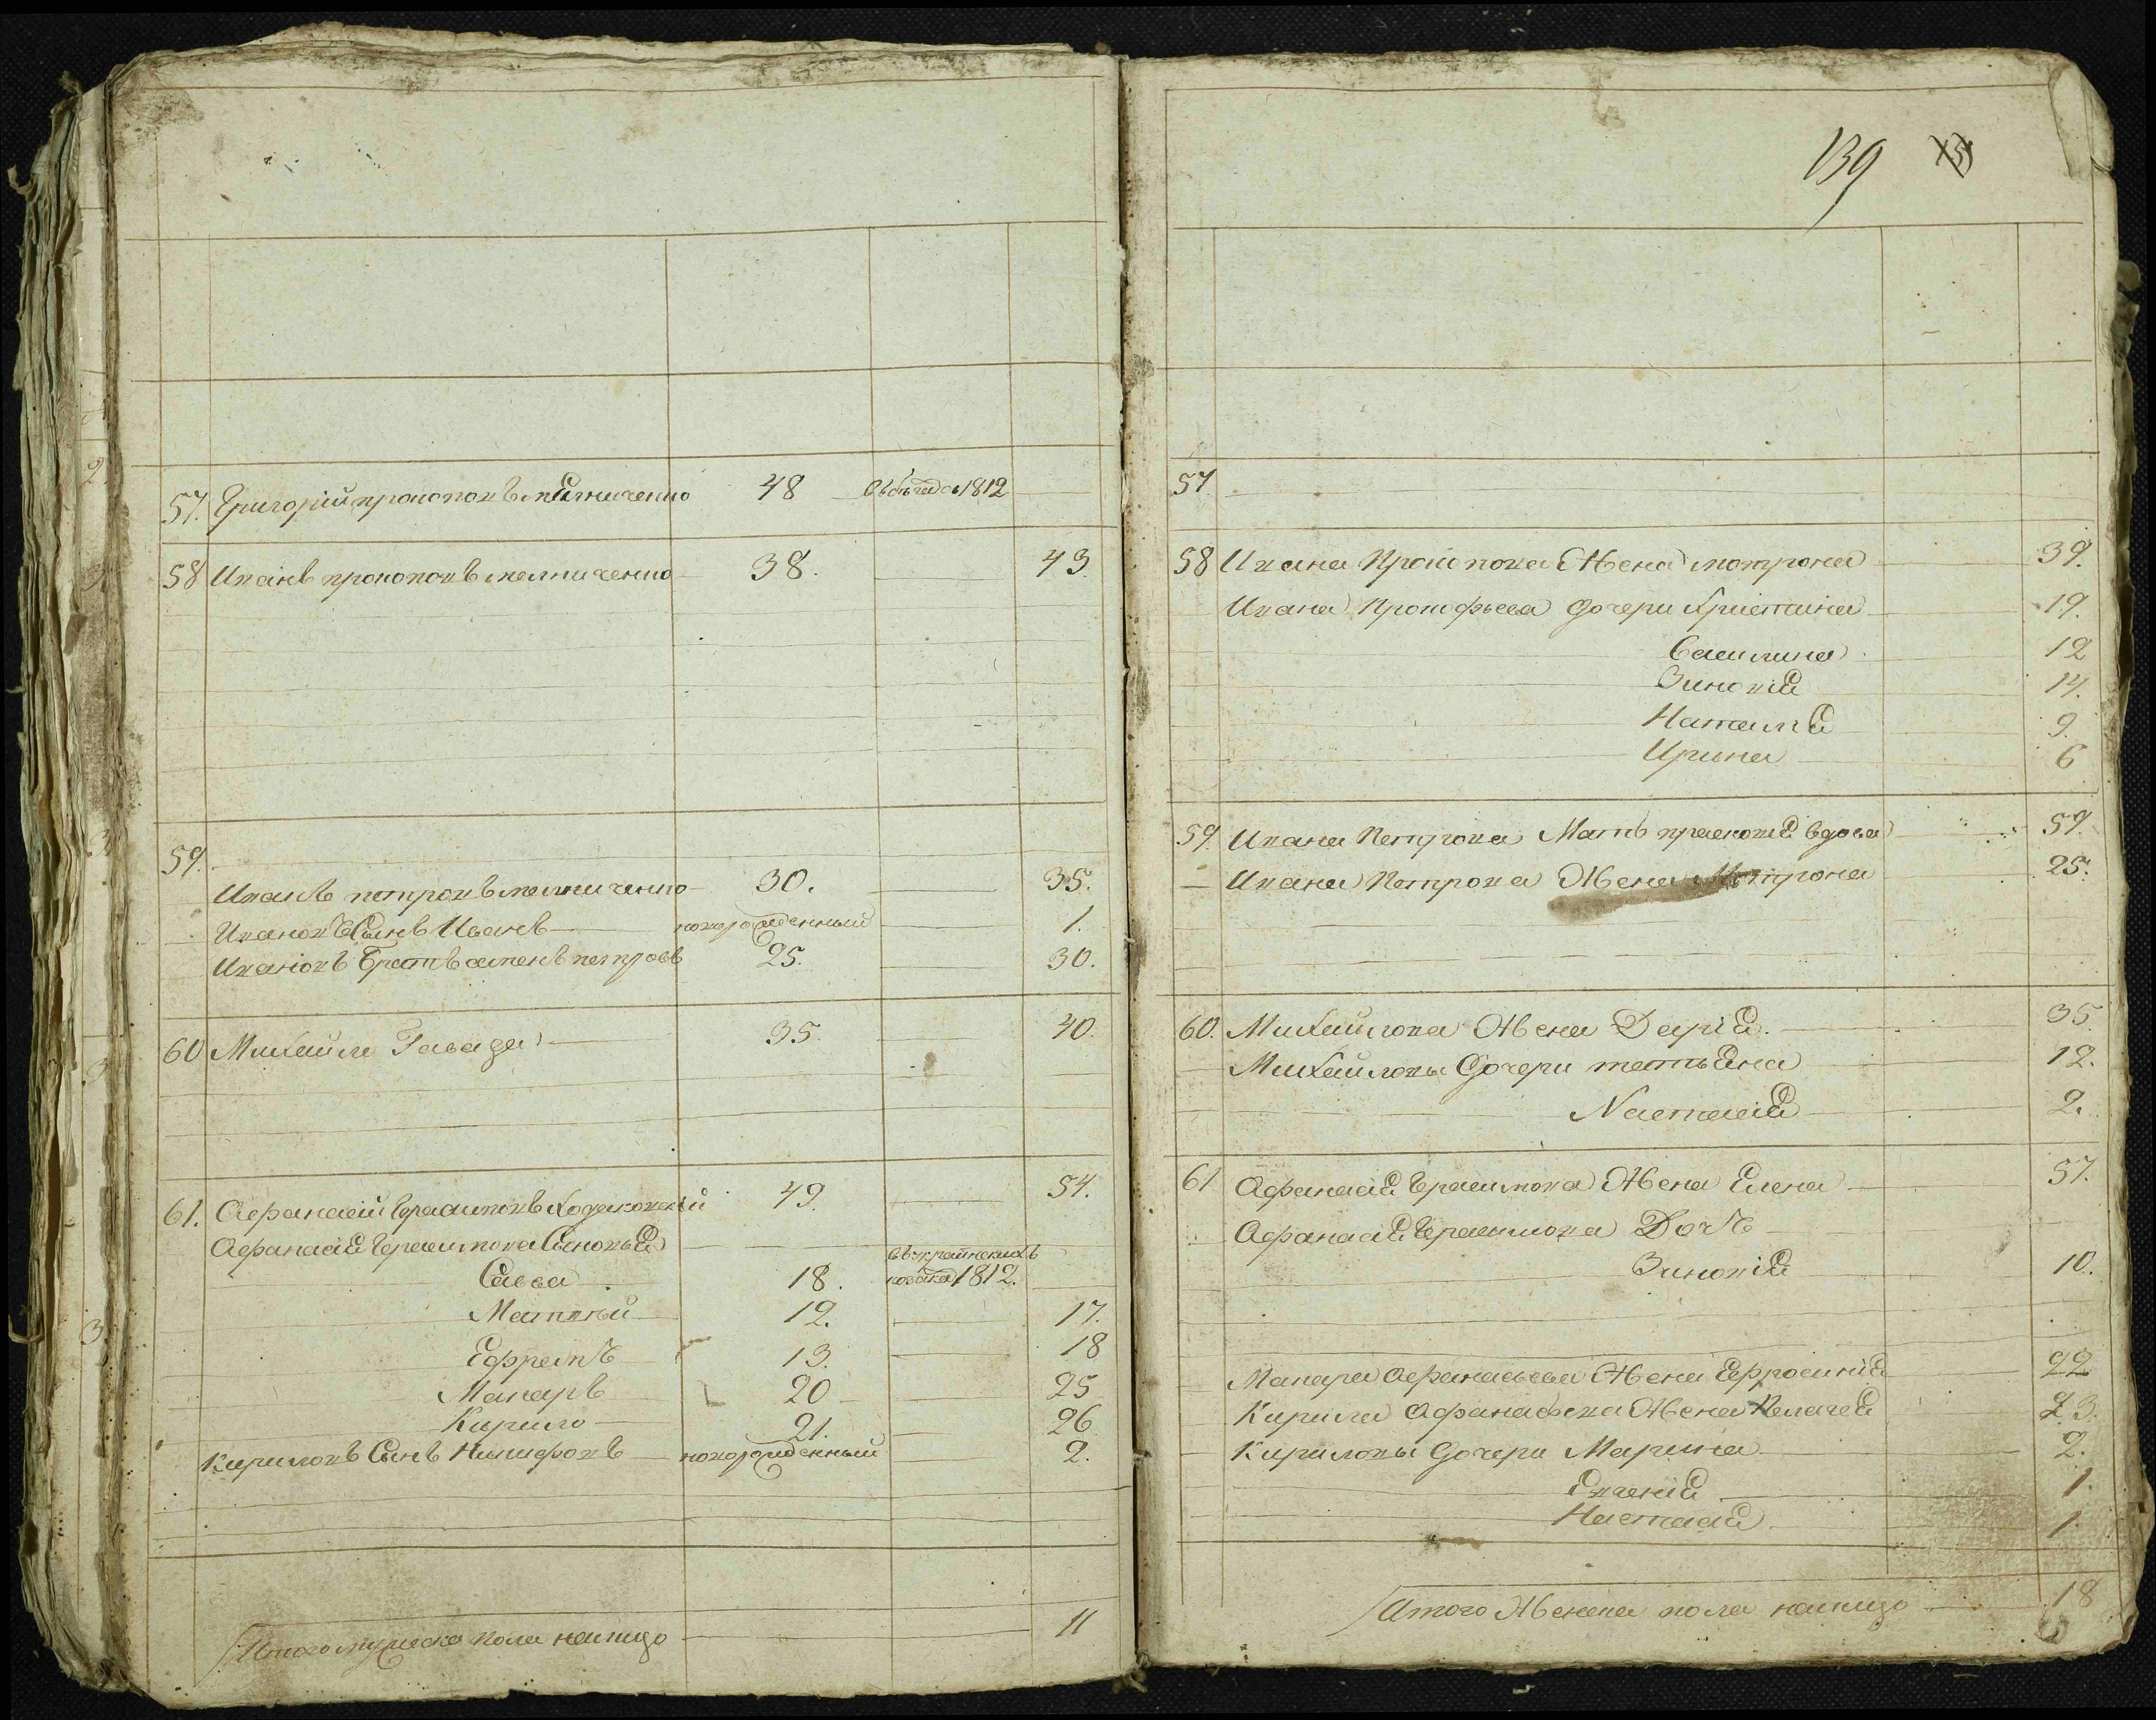 57. Григорій прокоповъ мелниченко 48 въ бегах съ 1812
58 Иванъ прокоповъ мелниченко 38. 43.
59.
Иванъ петровъ мелниченко 30. 35.
Ивановъ Сынъ Иванъ новорожденный 1.
Ивановъ Братъ семенъ петровъ 25. 30.
60 Михаила Гавада 35. 40.
61. Афанасій Герасимовъ Ходаковскій 49. 54.
Афанасія Герасимова Сыновья
Савва 18. въ украинскихъ козакахъ 1812.
Матвѣй 12. 17.
Ефремъ 13. 18
Макаръ 20 25
Кирило 21. 26.
Кириловъ Сынъ Никифоръ новорожденный 2.
Итого мужеска пола налицо 11
139
57.
58 Ивана Прокопова Жена мотрона 39.
Ивана Прокофьева дочери Христина 19.
Василина 12
Зиновія 14.
Наталья 9.
Ирина 6
59. Ивана Петрова Мать прасковія вдова 57.
Ивана Петрова Жена Мотрона 25.
60. Михайлова Жена Дарія. 35
Михайловы Дочери татьяна 12.
Настасія 2.
61 Афанасія Герасимова Жена Елена 57.
Афанасія Герасимова Дочъ
Зиновія 10.
Макара Афанасьева Жена Ефросинія 22
Кирила Афанасьева Жена Пелагея 23.
Кириловы дочери Марина 2.
Евгенія 1.
Настасія 1.
Итого Женска пола налицо 18